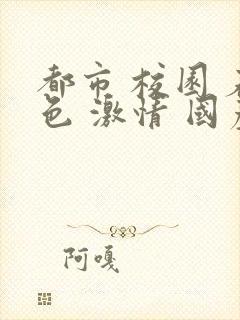 都市 校园
色 激情 国
阿嘎